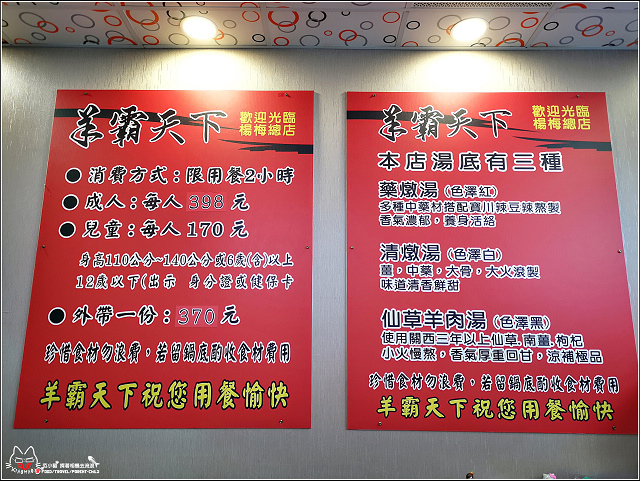 羊霸天下
歡迎光臨
楊梅總店
●消費方式：限用餐2小時
●成人：每人 398 元
●兒童：每人 170 元
身高110公分~140公分或6歲(含)以上
12歲以下(出示 身分證或健保卡
●外帶一份：370元
珍惜食材勿浪費，若留鍋底酌收食材費用
羊霸天下祝您用餐愉快
羊霸天下
歡迎光臨
楊梅總店
本店湯底有三種
藥燉湯(色澤紅)
多種中藥材搭配寶川辣豆辣熬製
香氣濃郁，養身活絡
清燉湯(色澤白)
薑，中藥，大骨，大火滾製
味道清香鮮甜
仙草羊肉湯(色澤黑)
使用關西三年以上仙草.南薑.枸杞
小火慢熬，香氣厚重回甘，涼補極品
珍惜食材勿浪費，若留鍋底酌收食材費用
羊霸天下祝您用餐愉快
FOOD/TRAVEL/PARENT-CHILD